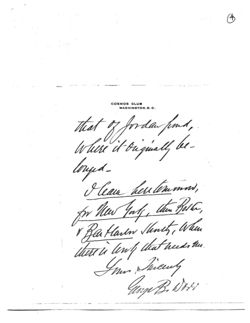 COSMOS CLUB
WASHINGTON, D.C.
that of Jordan Pond,
where it originally be-
longed.
I leave here tomorrow,
for New York, then Boston,
& Bar Harbor shortly, where
there is work that needs me
Yours Sincerely
George B. Dorr